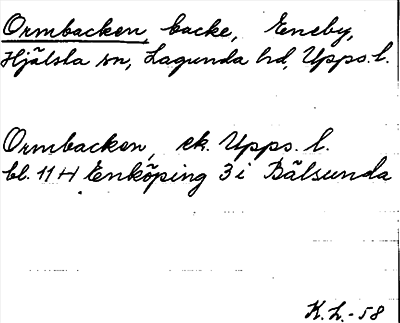 Ormbacken, backe, Eneby,
Hjälsta sn, Lagunda hd, Upps. l.
Ormbacken, ek. Upps. l.
bl. 11 H Enköping 3 i Bälsunda
K. L. -58